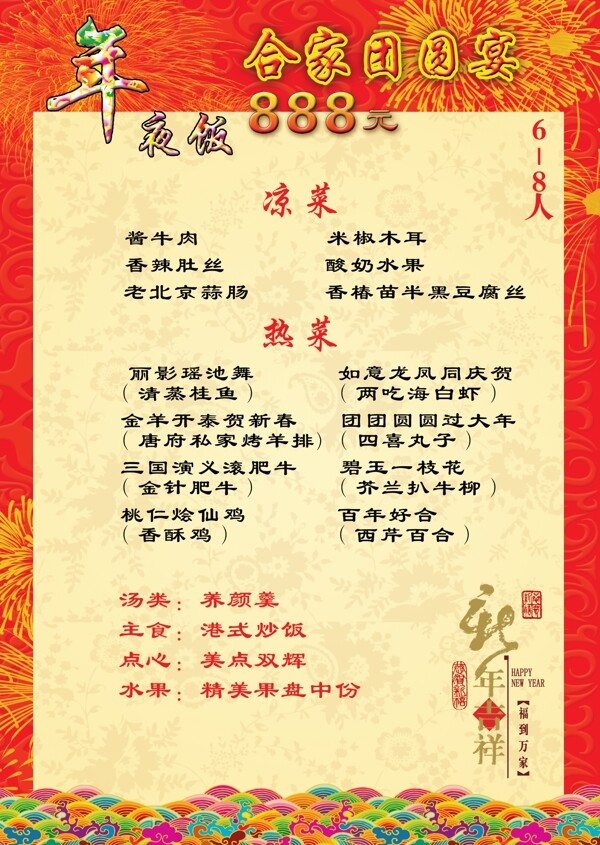 年夜饭
合家团圆宴
888元
6-8人
凉菜
酱牛肉 米椒木耳
香辣肚丝 酸奶水果
老北京蒜肠 香椿苗半黑豆腐丝
热菜
丽影瑶池舞 如意龙凤同庆贺
(清蒸桂鱼) (两吃海白虾)
金羊开泰贺新春 团团圆圆过大年
(唐府私家烤羊排) (四喜丸子)
三国演义滚肥牛 碧玉一枝花
(金针肥牛) (芥兰扒牛柳)
桃仁烩仙鸡 百年好合
(香酥鸡) (西芹百合)
汤类：养颜羹
主食：港式炒饭
点心：美点双辉
水果：精美果盘中份
新年吉祥
HAPPY
NEW YEAR
【福到万家】